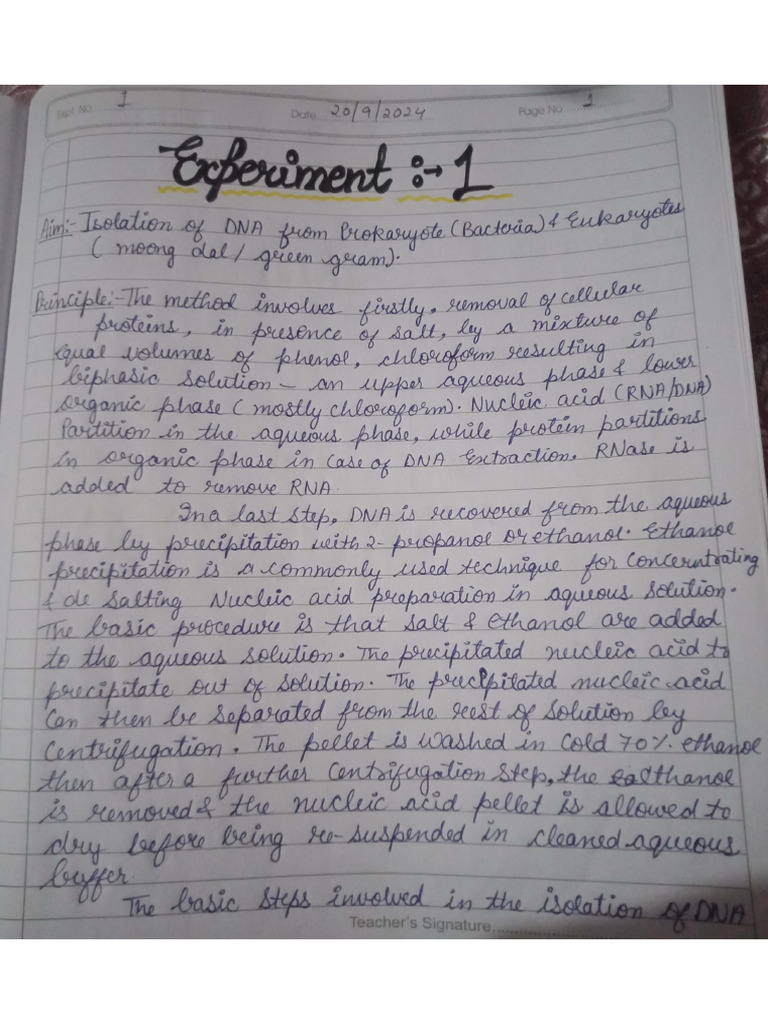 Expt No. 1 Date 20/9/2024 Page No. 1
Experiment :→ 1
Aim:- Isolation of DNA from Prokaryote (Bacteria) & Eukaryotes
( moong dal / green gram).
Principle:- The method involves firstly, removal of cellular
proteins, in presence of salt, by a mixture of
equal volumes of phenol, chloroform resulting in
biphasic solution - an upper aqueous phase & lower
organic phase ( mostly chloroform). Nucleic acid (RNA/DNA)
Partition in the aqueous phase, while protein partitions
in organic phase in case of DNA Extraction. RNase is
added to remove RNA.
In a last step, DNA is recovered from the aqueous
phase by precipitation with 2- propanol or ethanol. Ethanol
precipitation is a commonly used technique for concerntrating
& de salting Nucleic acid preparation in aqueous solution.
The basic procedure is that salt & ethanol are added
to the aqueous solution. The precipitated nucleic acid to
precipitate out of solution. The precipitated nucleic acid
can then be separated from the rest of solution by
centrifugation. The pellet is washed in cold 70% ethanol
then after a further centrifugation step, the ethanol
is removed & the nucleic acid pellet is allowed to
dry before being re-suspended in cleaned aqueous
buffer.
The basic steps involved in the isolation of DNA
Teacher's Signature